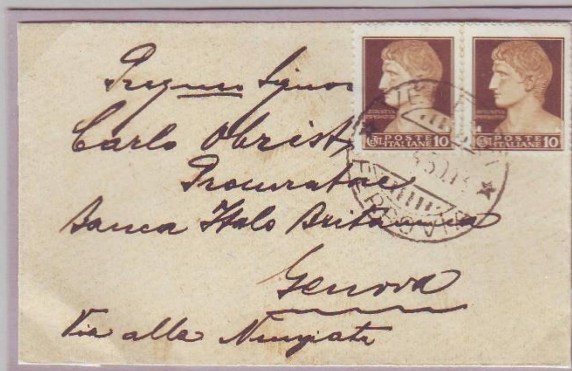 Pregmo Signor
Carlo Obrist
Procuratore
Banca Italo Britannica
Genova
Via alla Nunziata
POSTE ITALIANE
CENT 10
POSTE ITALIANE
CENT 10
FERROVIA